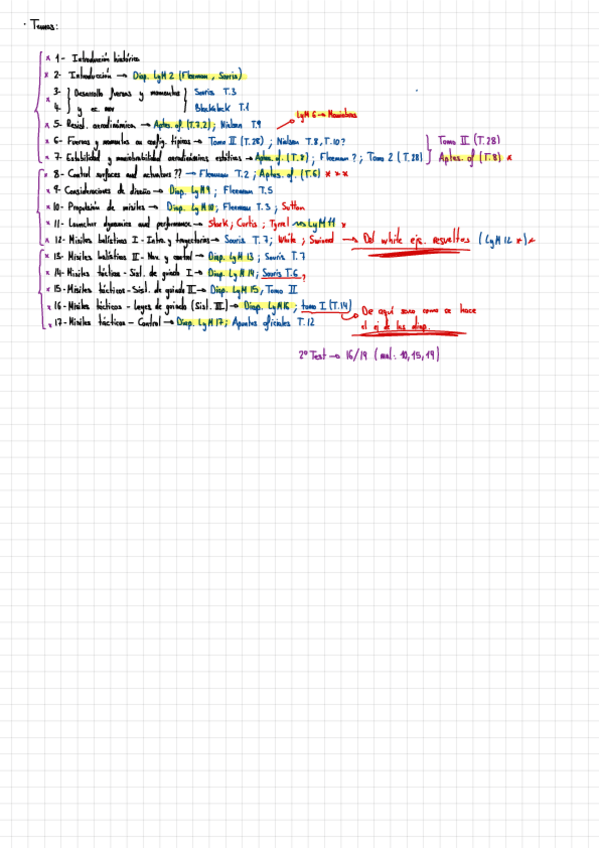 · Temas:
× 1- Introducción histórica
× 2- Introducción → Diap. LyM 2 (Fleeman, Siouris)
3- } Desarrollo fuerzas y momentos } Siouris T.3
4- } y ec. mov } Blakelock T.1
LyM 6 → Maniobras
× 5- Resist. aerodinámica → Aptes. of. (T.7.2) ; Nielsen T.9
× 6- Fuerzas y momentos en config. típicas → Tomo II (T.28) ; Nielsen T.8, T.10? } Tomo II (T.28)
× 7- Estabilidad y maniobrabilidad aerodinámicas estáticas → Aptes. of. (T.8) ; Fleeman ? ; Tomo 2 (T.28) } Aptes. of (T.8) *
× 8- Control surfaces and actuators ?? → Fleeman T.2 ; Aptes. of. (T.6) * * *
× 9- Consideraciones de diseño → Diap. LyM 9 ; Fleeman T.5
× 10- Propulsión de misiles → Diap. LyM 10 ; Fleeman T.3 ; Sutton
× 11- Launcher dynamics and performance → Stark ; Curtis ; Tyrrel → LyM 11 *
× 12- Misiles balísticos I - Intro. y trayectorias → Siouris T.7 ; White ; → Del white ejs. resueltos (LyM 12 *) *
× 13- Misiles balísticos II - Nav. y control → Diap. LyM 13 ; Siouris T.7
× 14- Misiles tácticos - Sist. de guiado I → Diap. LyM 14 ; Siouris T.6 ?
× 15- Misiles tácticos - Sist. de guiado II → Diap. LyM 15, Tomo II
× 16- Misiles tácticos - Leyes de guiado (Sist. III) → Diap. LyM 16 ; tomo I (T.14) → De aquí saco como se hace
el ej de las diap.
× 17- Misiles tácticos - Control → Diap. LyM 17 ; Apuntes oficiales T.12
2º Test → 16/19 (mal: 10, 15, 19)